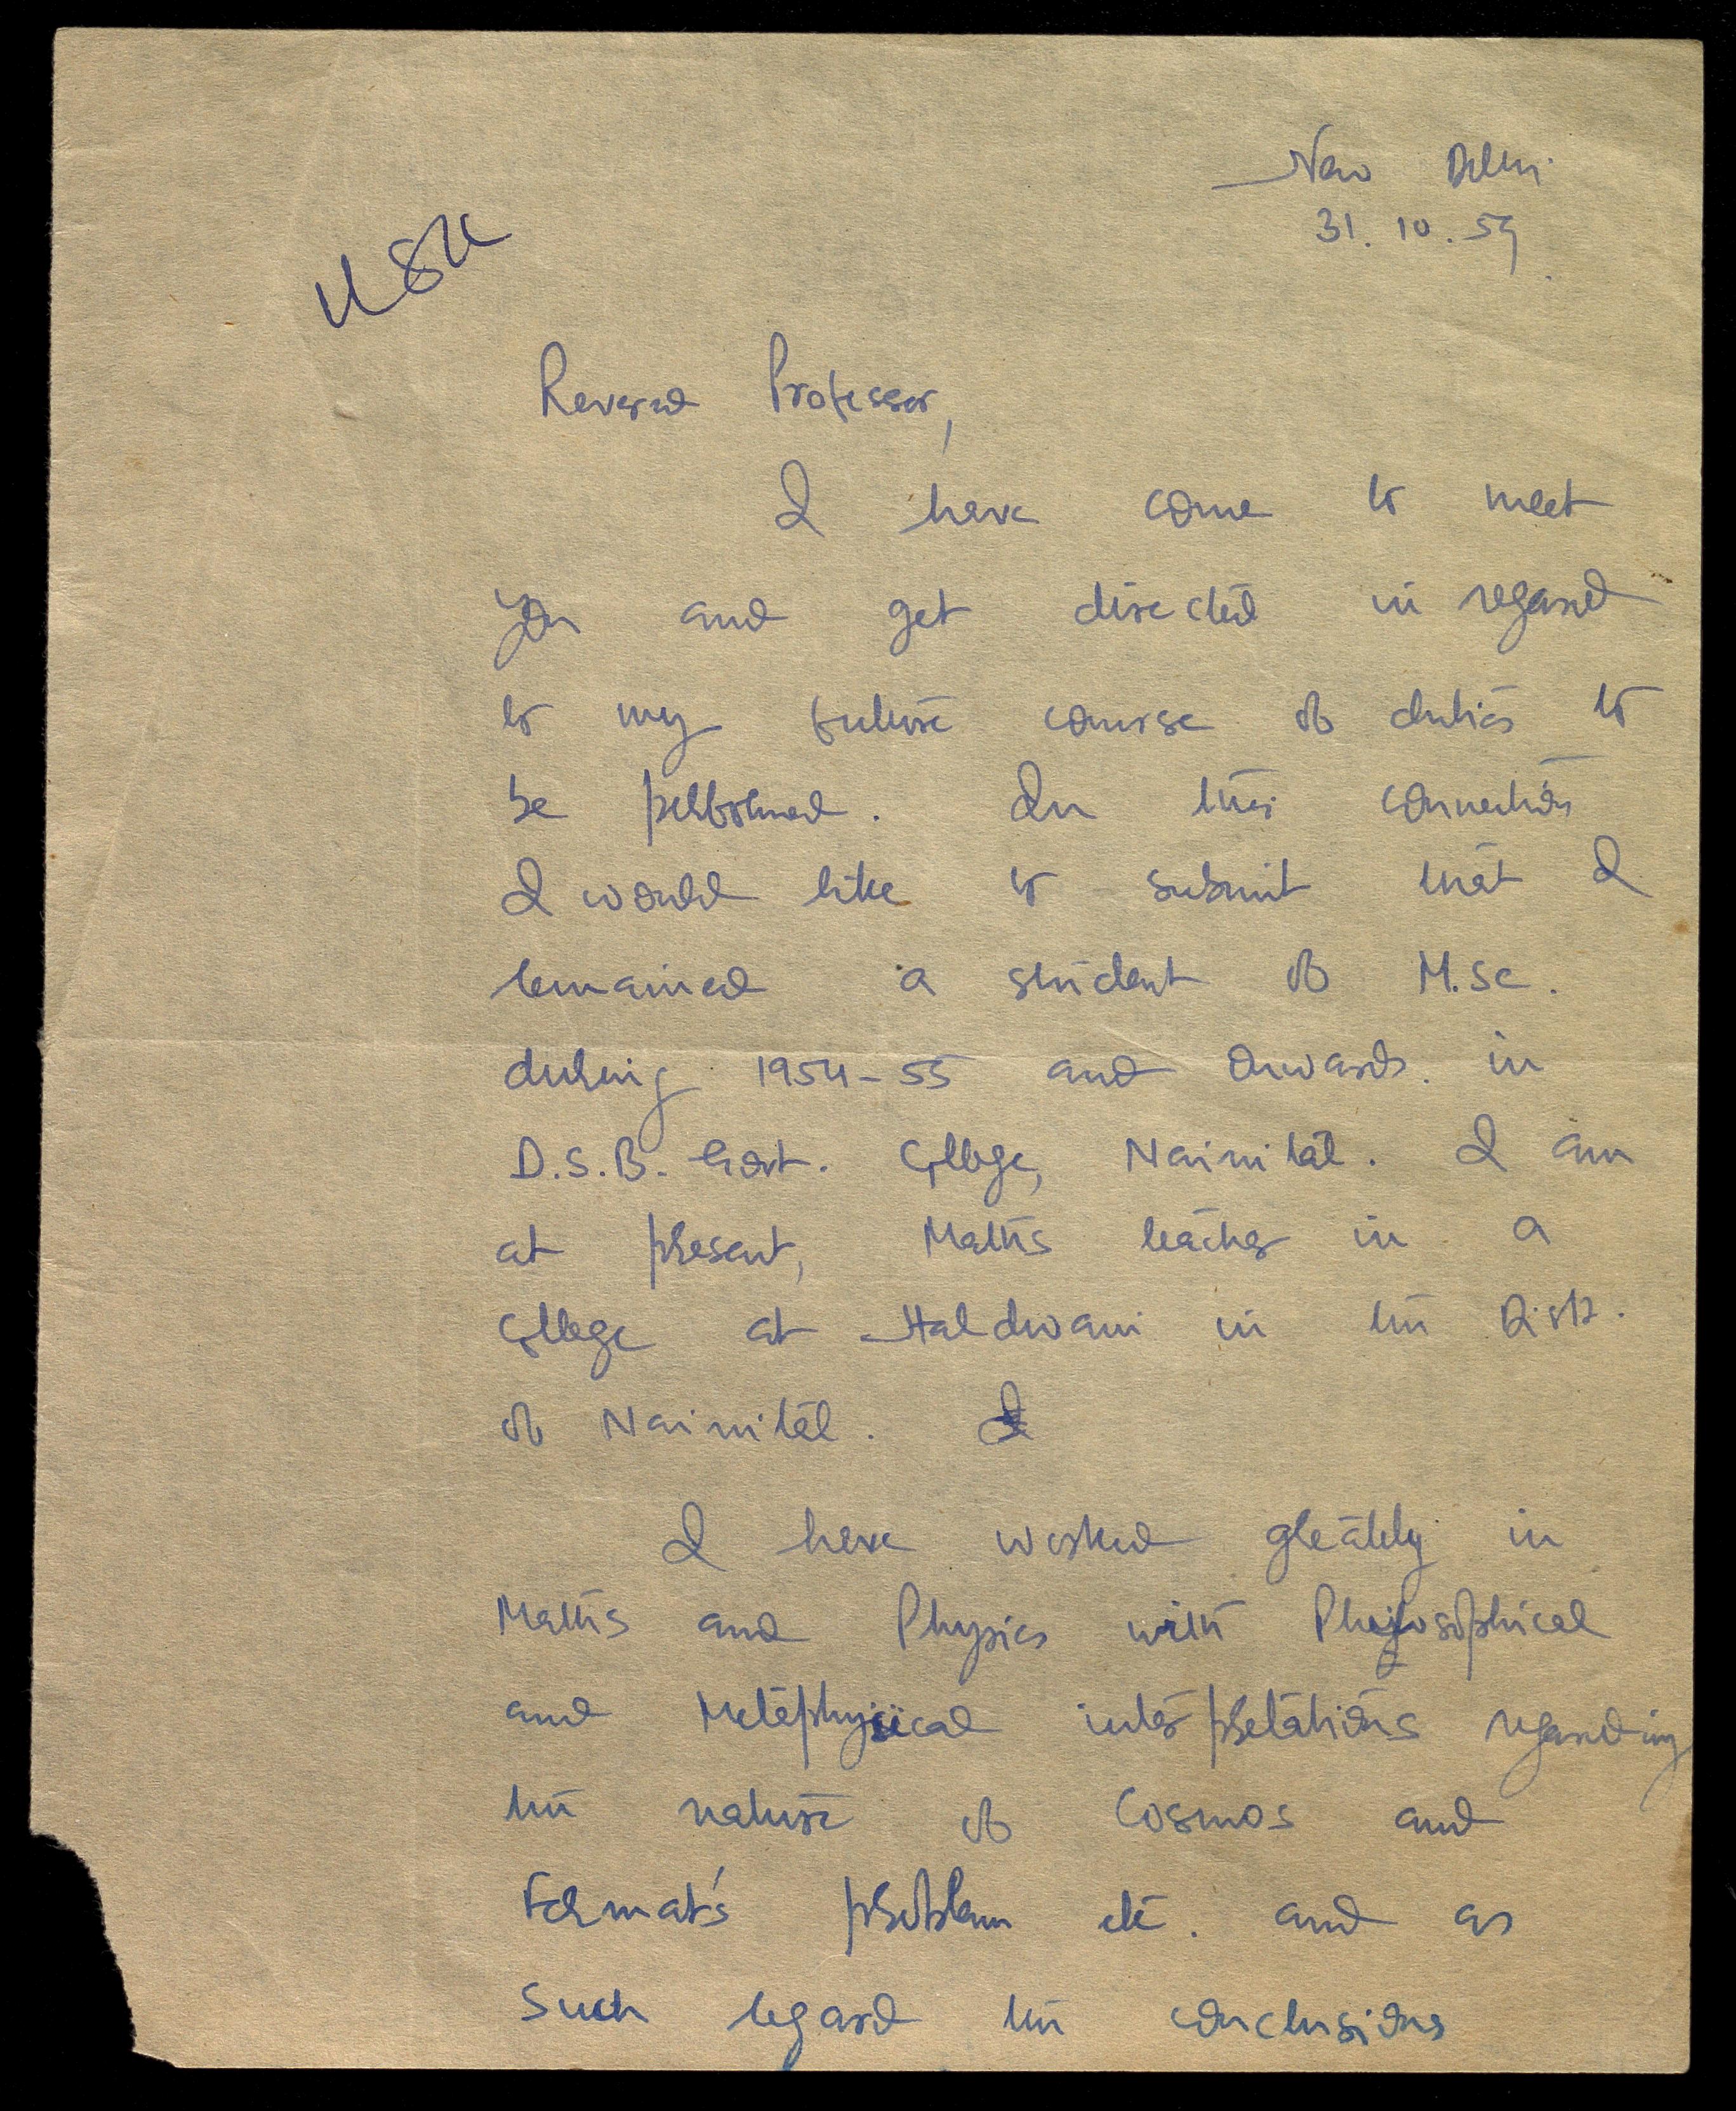 New Delhi
31. 10. 59
Revered Professor,
I have come to meet
you and get directed in regard
to my future course of duties to
be performed. In this connection
I would like to submit that I
remained a student of M.Sc.
during 1954-55 and onwards. in
D.S.B. Govt. College, Nainital. I am
at present, Maths teacher in a
College at Haldwani in the Distt.
of Nainital.
I have worked greatly in
Maths and Physics with Philosophical
and Metaphysical interpretations regarding
the nature of Cosmos and
Fermat's problem etc. and as
such regard the conclusions